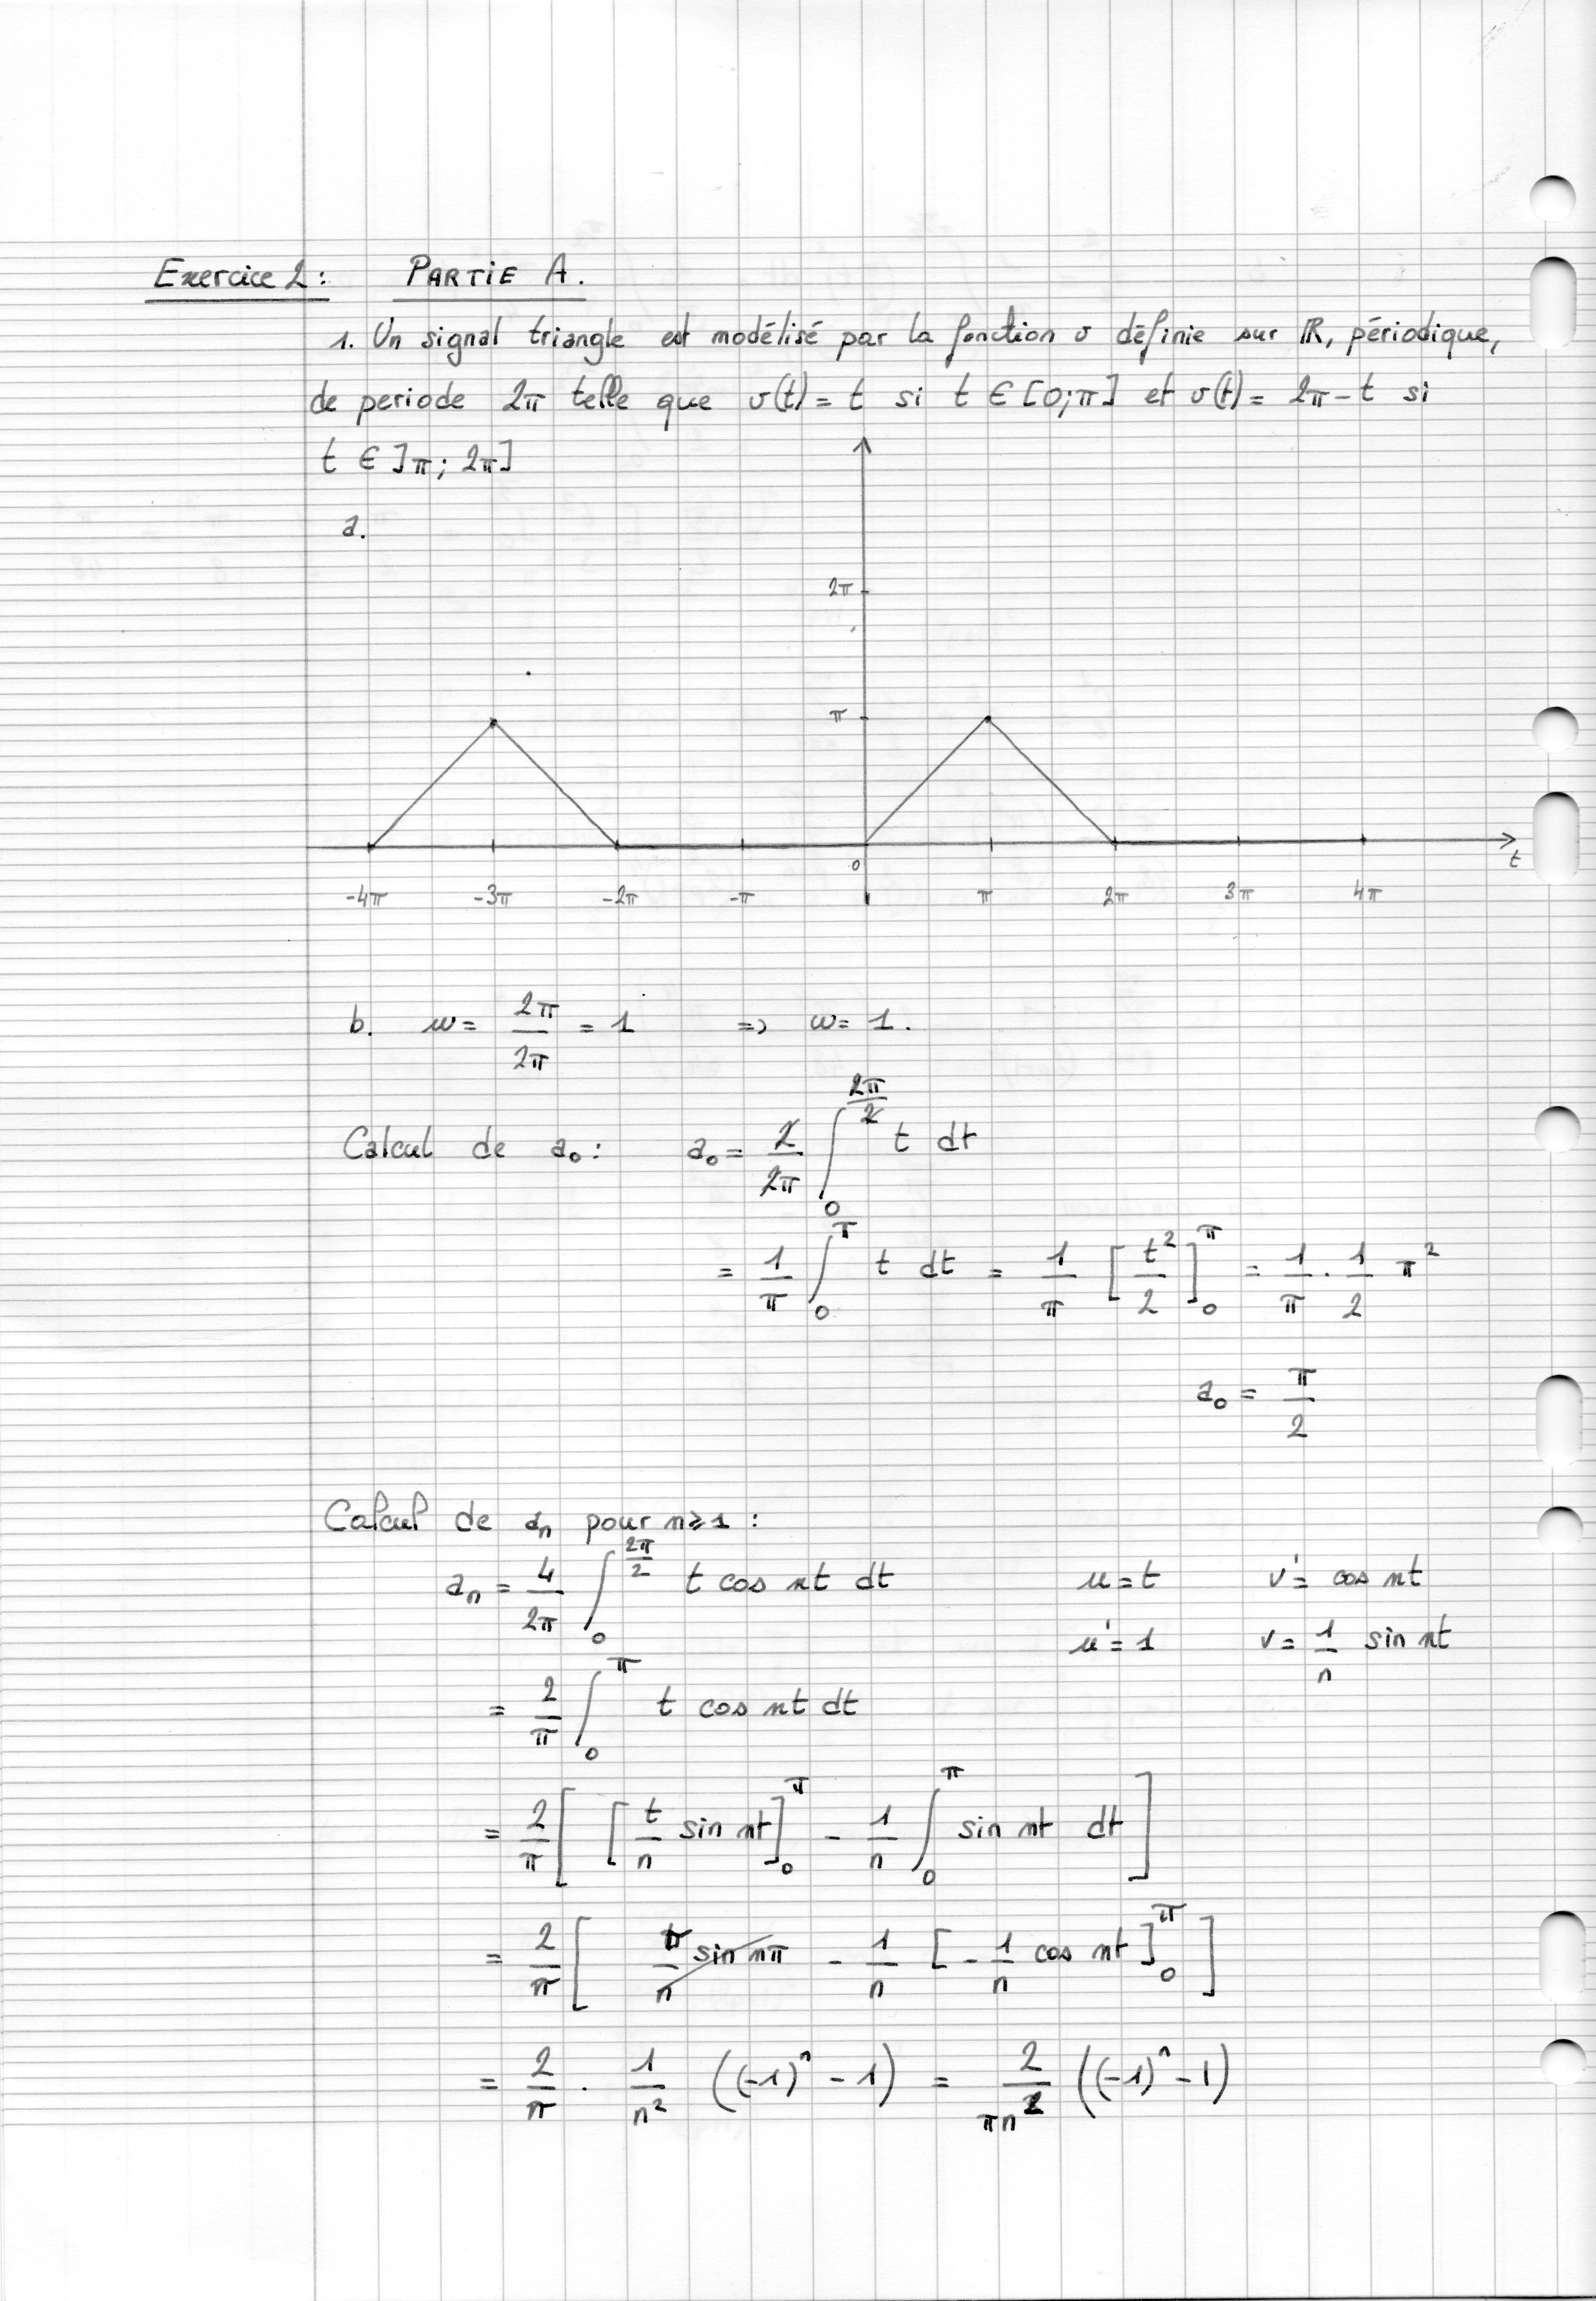 Exercice 2 : PARTIE A.
1. Un signal triangle est modélisé par la fonction v définie sur ℝ, périodique,
de periode 2π telle que v(t) = t si t ∈ [0;π] et v(t) = 2π - t si
t ∈ ]π; 2π]
a.
2π
π
0
t
-4π -3π -2π -π π 2π 3π 4π
b. ω = 2π/2π = 1 => ω = 1.
Calcul de a₀ : a₀ = 2/2π ∫₀^(2π/2) t dt
= 1/π ∫₀^π t dt = 1/π [t²/2]₀^π = 1/π . 1/2 π²
a₀ = π/2
Calcul de aₙ pour n ≥ 1 :
aₙ = 4/2π ∫₀^(2π/2) t cos nt dt u = t v' = cos nt
u' = 1 v = 1/n sin nt
= 2/π ∫₀^π t cos nt dt
= 2/π [ [t/n sin nt]₀^π - 1/n ∫₀^π sin nt dt ]
= 2/π [ π/n sin nπ - 1/n [-1/n cos nt]₀^π ]
= 2/π . 1/n² ((-1)ⁿ - 1) = 2/πn² ((-1)ⁿ - 1)